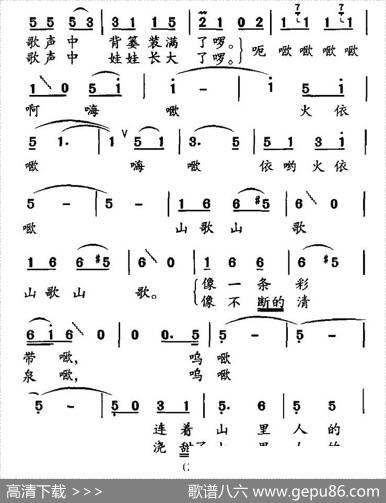 5 5 5 3 | 3 1 1 5 | 2 1 0 2 | 1 1 1 1
歌声中 背篓装满 了啰。 呃 啾啾啾啾
歌声中 娃娃长大 了啰。
1 0 5 i | i - | i 5 i | 火依
啊 嗨 啾 火依
5 1. | 1 5 1 | 3. 5 | 5 1 3 i
啾 嗨 啾 依哟火依
5 - | 5 - | 1 6 6 #5 | 6 0
啾 山歌山 歌
1 6 6 #5 | 6 0 | 1 6 6 | 6 #5 5
山歌山 歌。 像一条彩
像不断的清
6 i 6 0 | 0 0. 5 | 5 - | 5 -
带啾, 呜啾
泉啾, 呜啾
5 - | 5 0 3 1 | 5. 6 | 6 6 5
连着 山里人的
浇甜
高清下载 >>>
歌谱八六 www.gepu86.com